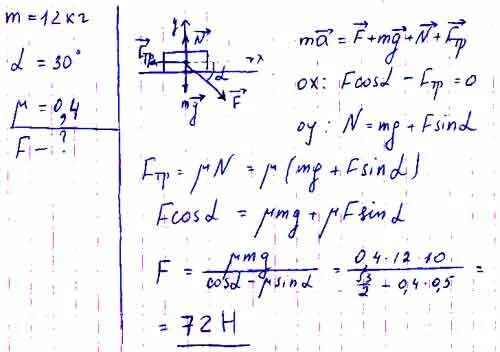 m = 12 кг
α = 30°
μ = 0,4
F - ?
y
N⃗
F⃗тр
x
α
mg⃗
F⃗
ma⃗ = F⃗ + mg⃗ + N⃗ + F⃗тр
ox: Fcosα - Fтр = 0
oy: N = mg + Fsinα
Fтр = μN = μ(mg + Fsinα)
Fcosα = μmg + μFsinα
F = μmg / (cosα - μsinα) = 0,4·12·10 / (√3/2 - 0,4·0,5) =
= 72 Н